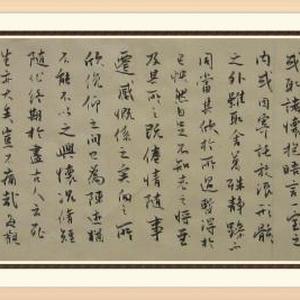 或取諸懷抱悟言一室之
內或因寄所託放浪形骸
之外雖趣舍萬殊靜躁不
同當其欣於所遇暫得於
己快然自足不知老之將至
及其所之既倦情隨事
遷感慨係之矣向之所
欣俛仰之間已為陳迹猶
不能不以之興懷況脩短
隨化終期於盡古人云死
生亦大矣豈不痛哉每覽